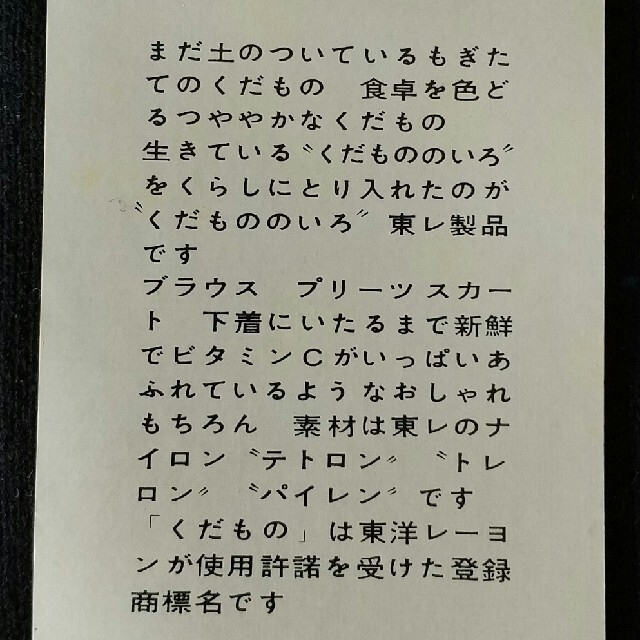 まだ土のついているもぎた
てのくだもの　食卓を色ど
るつややかなくだもの
生きている〝くだもののいろ〞
をくらしにとり入れたのが
〝くだもののいろ〞東レ製品
です
ブラウス　プリーツスカー
ト　下着にいたるまで新鮮
でビタミンCがいっぱいあ
ふれているようなおしゃれ
もちろん　素材は東レのナ
イロン〝テトロン〞〝トレ
ロン〞〝パイレン〞です
「くだもの」は東洋レーヨ
ンが使用許諾を受けた登録
商標名です